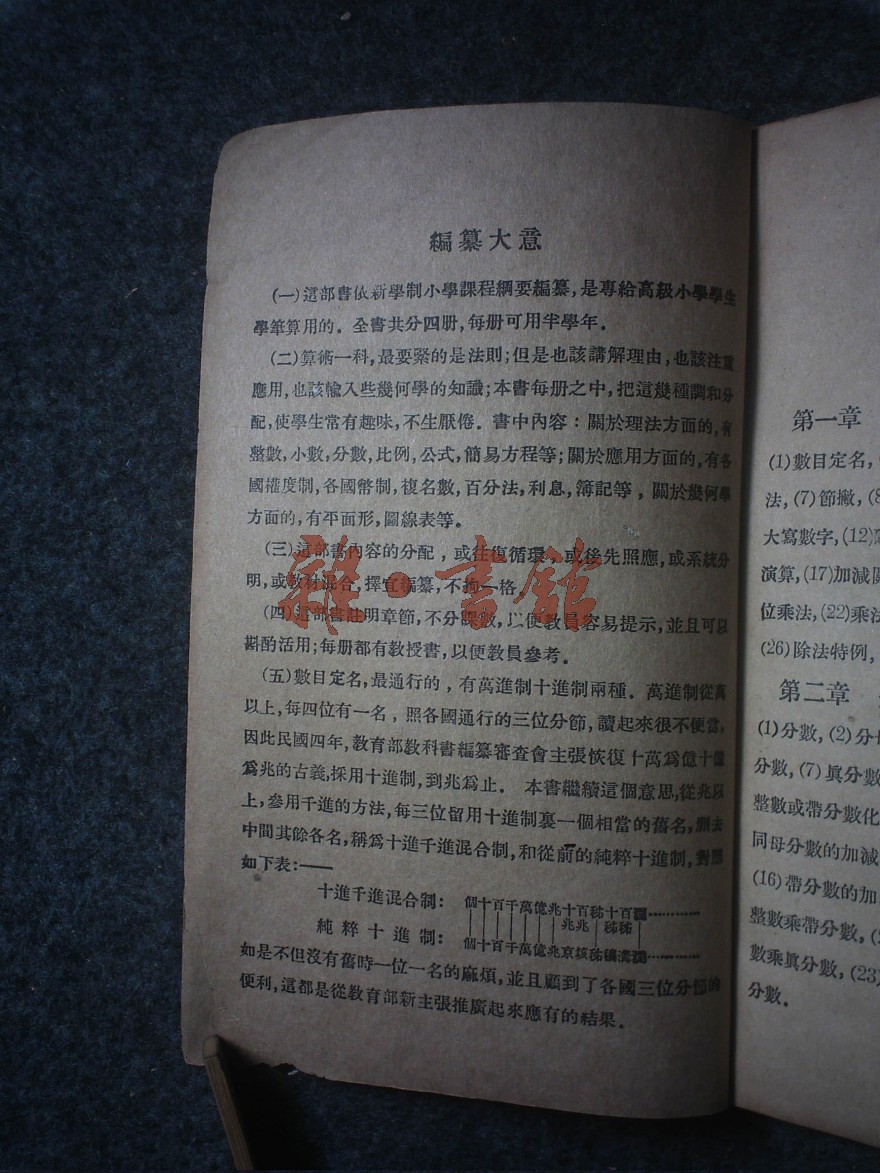 編纂大意
(一)這部書依新學制小學課程綱要編纂,是專給高級小學學生
學筆算用的。全書共分四册,每册可用半學年。
(二)算術一科,最要緊的是法則;但是也該講解理由,也該注重
應用,也該輸入些幾何學的知識;本書每册之中,把這幾種調和分
配,使學生常有趣味,不生厭倦。書中內容:關於理法方面的,有
整數,小數,分數,比例,公式,簡易方程等;關於應用方面的,有各
國權度制,各國幣制,複名數,百分法,利息,簿記等,關於幾何學
方面的,有平面形,圖線表等。
(三)這部書內容的分配,或往復循環,或後先照應,或系統分
明,或教材混合,擇宜編纂,不拘一格。
(四)這部書註明章節,不分課數,以便教員容易提示,並且可以
斟酌活用;每册都有教授書,以便教員參考。
(五)數目定名,最通行的,有萬進制十進制兩種。萬進制從萬
以上,每四位有一名,照各國通行的三位分節,讀起來很不便當。
因此民國四年,教育部教科書編纂審查會主張恢復十萬爲億十億
爲兆的古義,採用十進制,到兆爲止。本書繼續這個意思,從兆以
上,參用千進的方法,每三位留用十進制裏一個相當的舊名,刪去
中間其餘各名,稱爲十進千進混合制,和從前的純粹十進制,對照
如下表:——
十進千進混合制: 個十百千萬億兆十百秭十百
兆兆 秭秭
純粹十進制: 個十百千萬億兆京垓秭穰溝澗
如是不但沒有舊時一位一名的麻煩,並且顧到了各國三位分節的
便利,這都是從教育部新主張推廣起來應有的結果。
雜·書館
第一章
(1)數目定名,
法,(7)節撇,(8
大寫數字,(12)
演算,(17)加減
位乘法,(22)乘法
(26)除法特例,
第二章
(1)分數,(2)分
分數,(7)眞分數
整數或帶分數化
同母分數的加減
(16)帶分數的加
整數乘帶分數,(
數乘眞分數,(23)
分數。